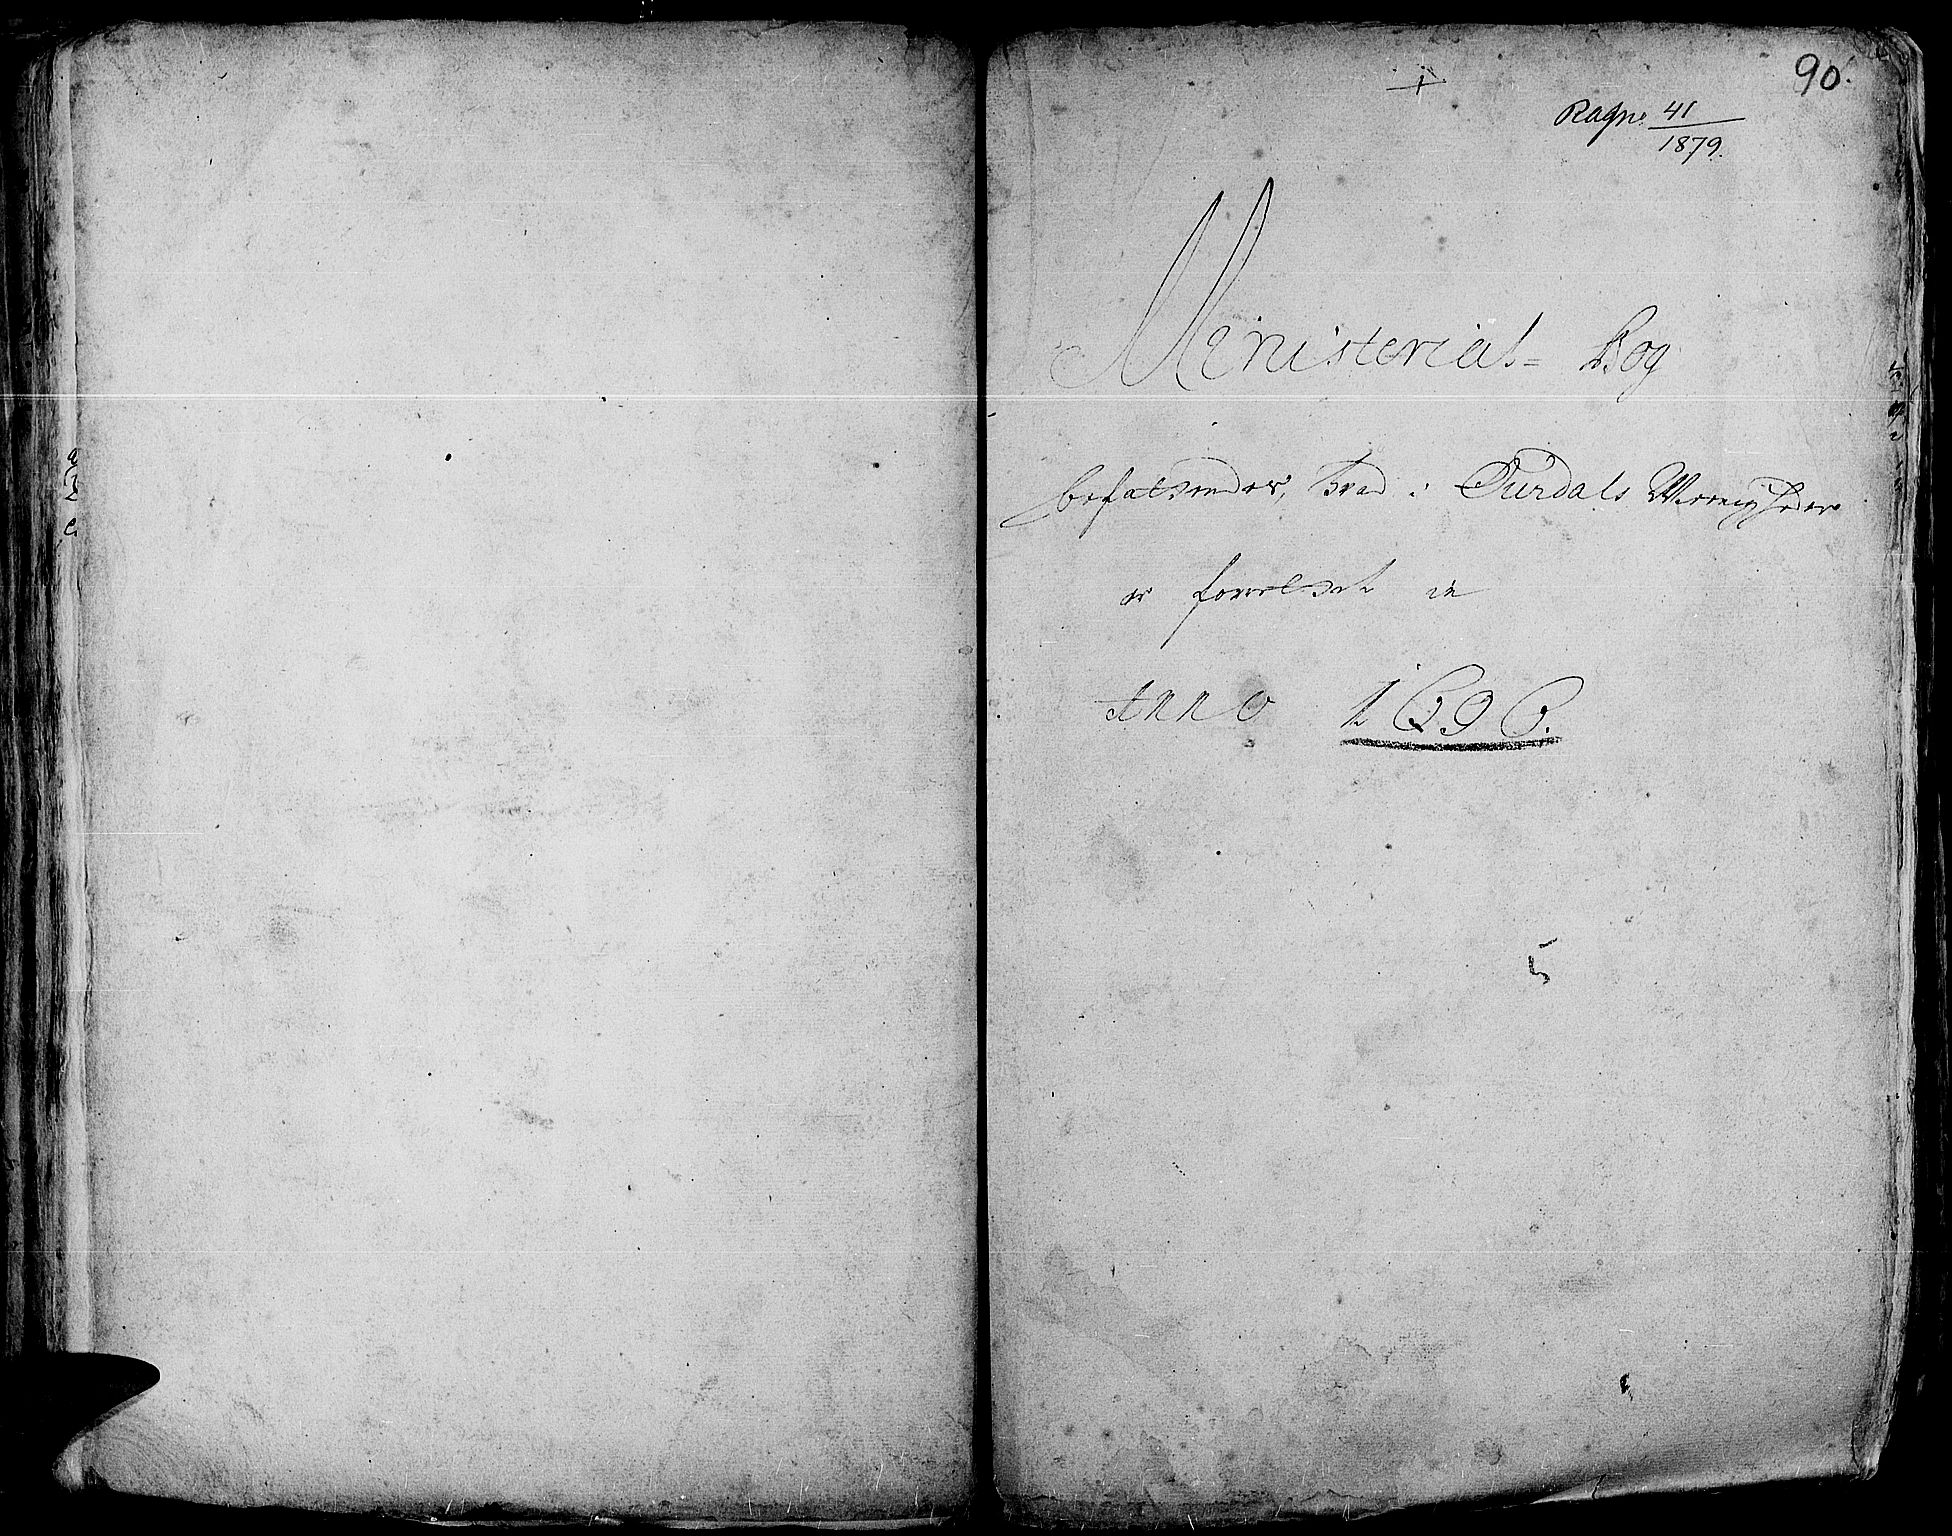 90.
41
1879.
Ministerial= Bog
befattendes, hvad i Ourdals Menigheder
er forrettet in
Anno 1696.
5